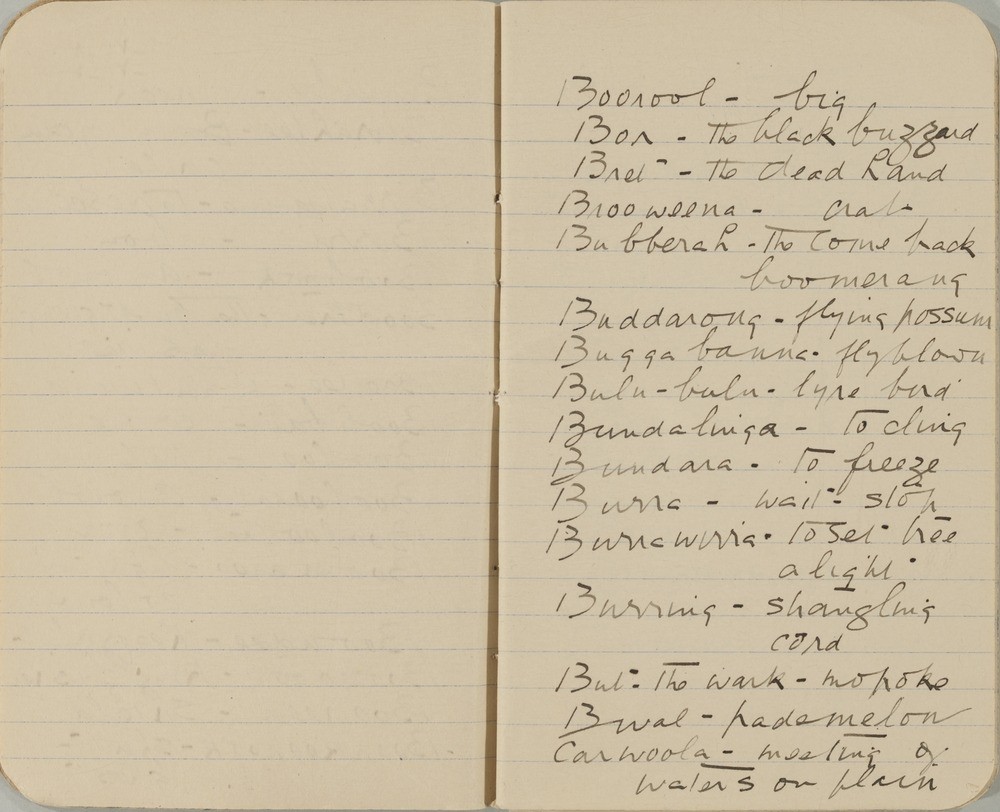 Boorool - big
Bor - the black buzzard
Bret - the dead hand
Brooweena - crab
Bubberah - the come back
boomerang
Buddarong - flying possum
Bugga banna - flyblown
Bulu-bulu - lyre bird
Bundalinga - to cling
Bundara - to freeze
Burra - wait - stop
Burrawirra - to set tree
alight
Burring - strangling
cord
But - the wark - mopoke
Bwal - pademelon
Carwoola - meeting of
waters on plain